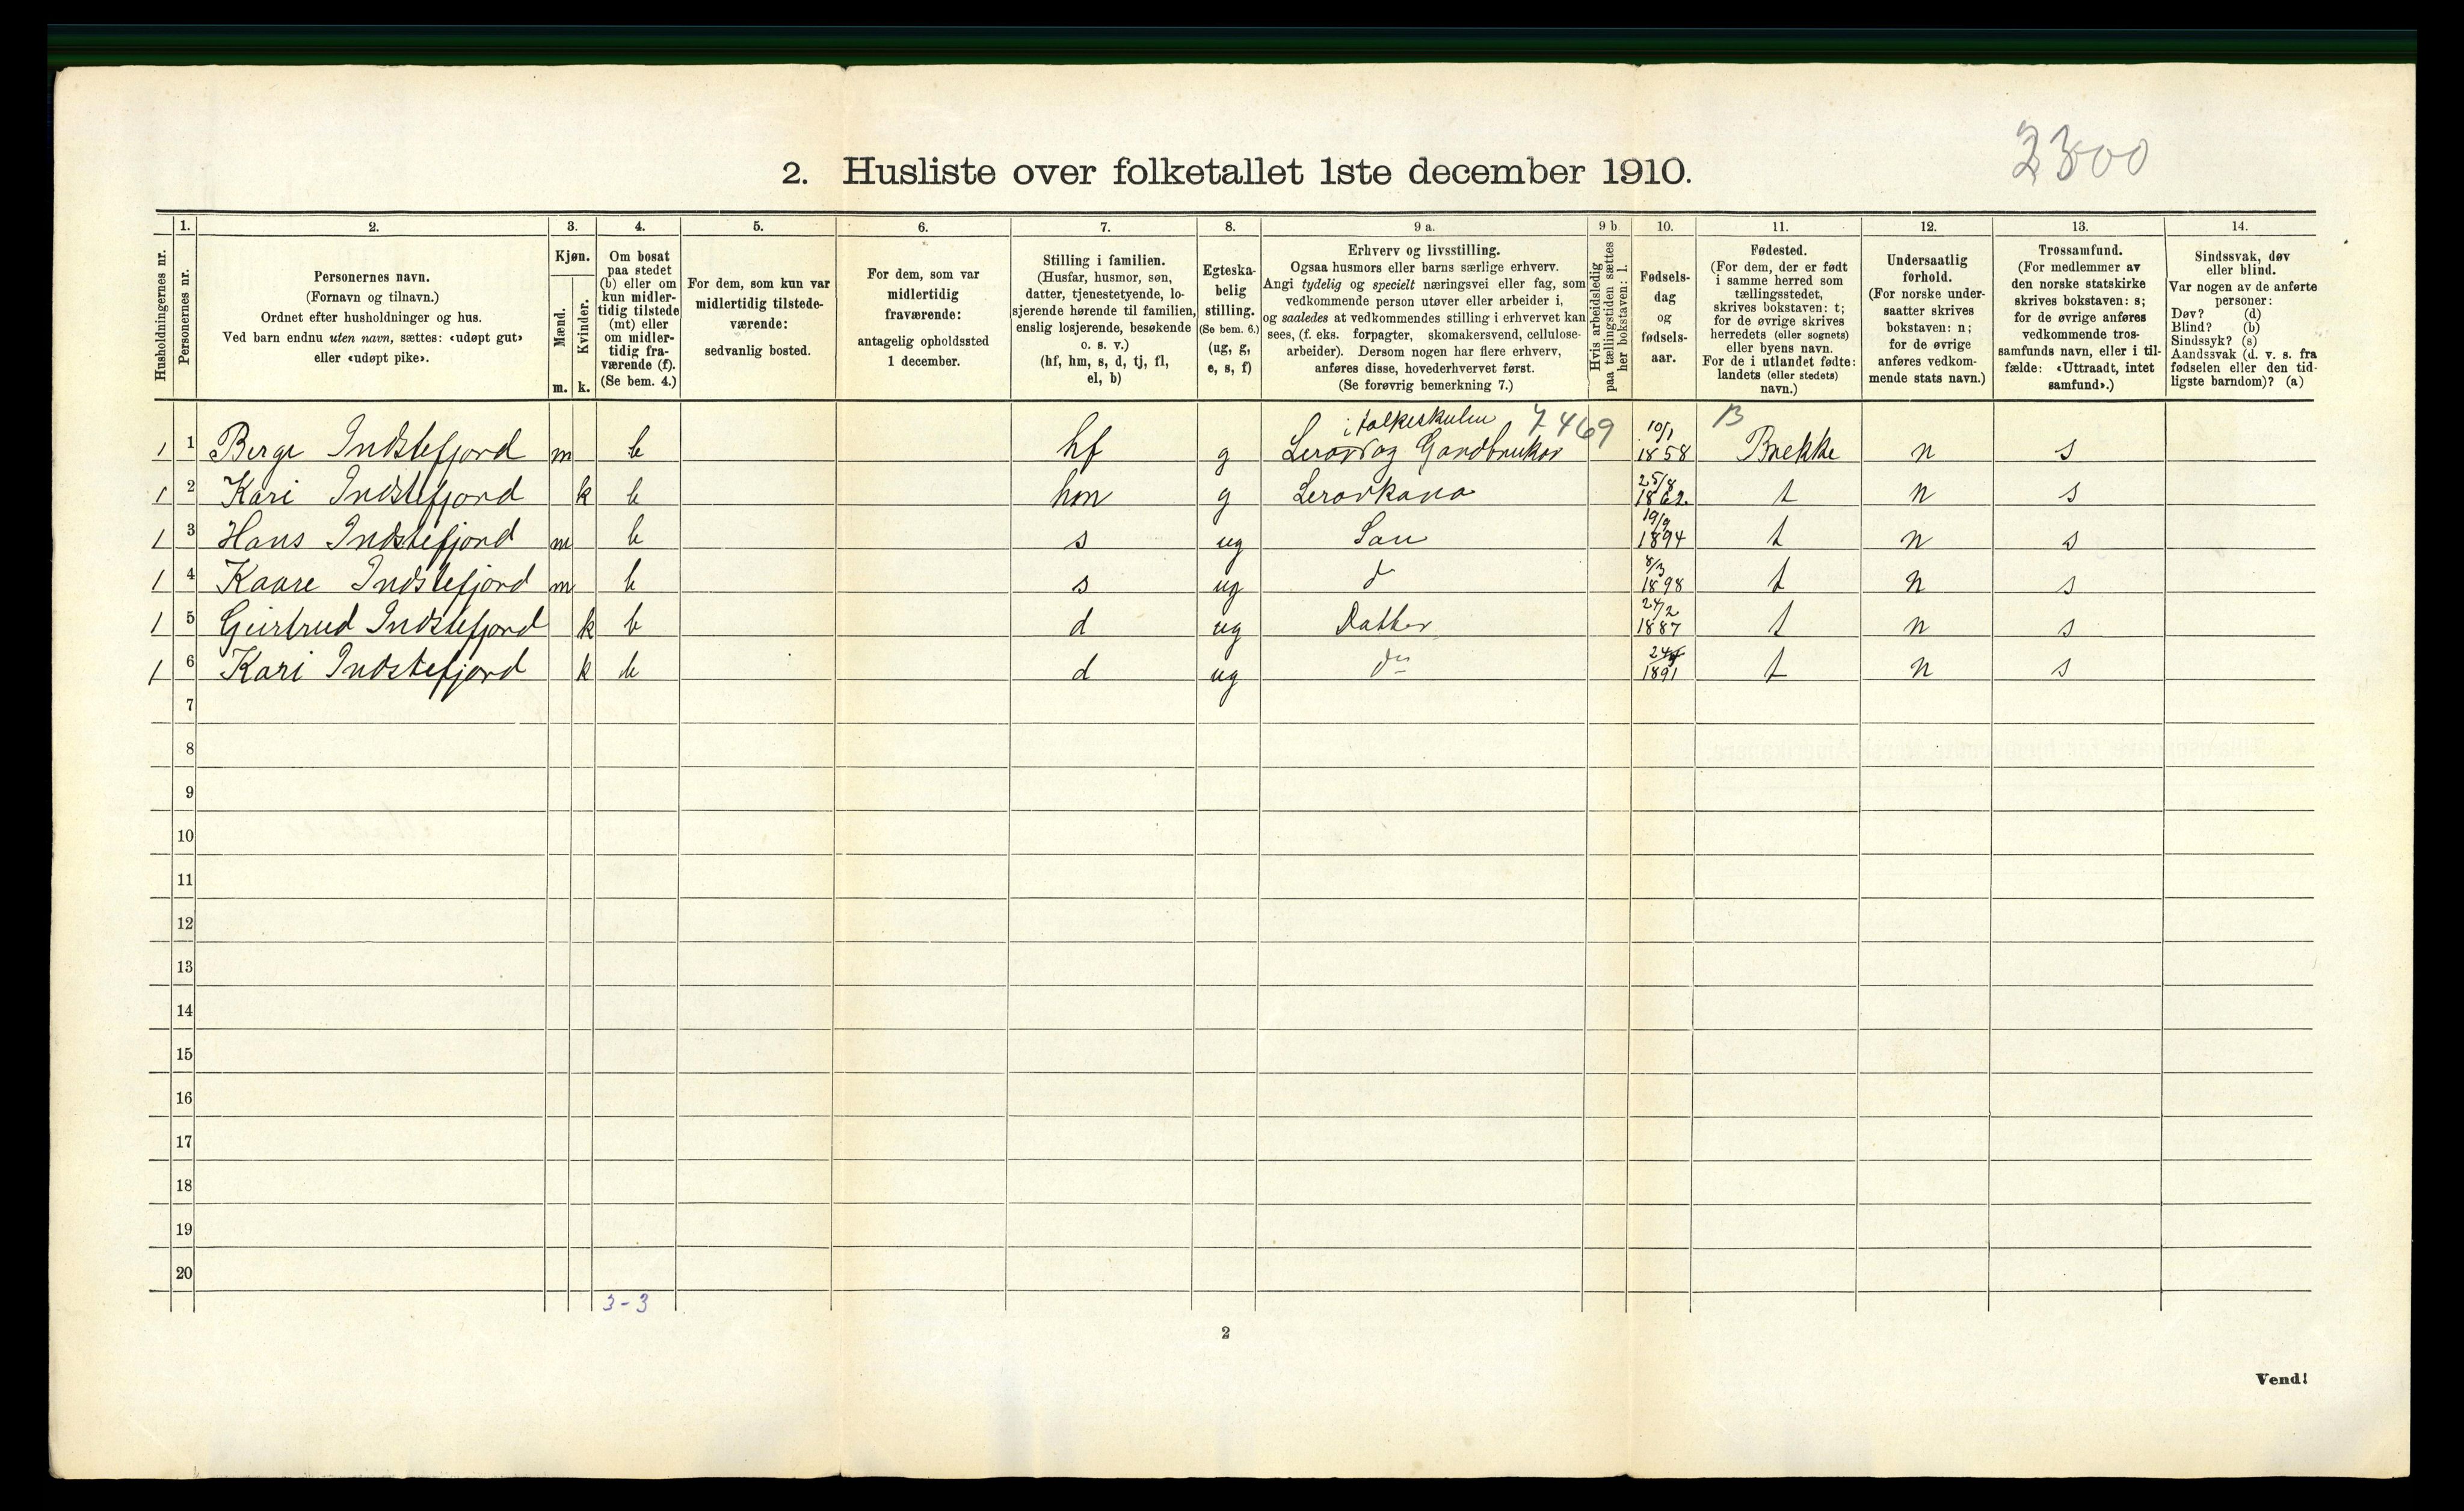 2300
2. Husliste over folketallet 1ste december 1910.
Husholdningernes nr.
1.
Personernes nr.
2.
Personernes navn.
(Fornavn og tilnavn.)
Ordnet efter husholdninger og hus.
Ved barn endnu uten navn, sættes: «udøpt gut»
eller «udøpt pike».
3.
Kjøn.
Mænd.
Kvinder.
m. k.
4.
Om bosat
paa stedet
(b) eller om
kun midler-
tidig tilstede
(mt) eller
om midler-
tidig fra-
værende (f).
(Se bem. 4.)
5.
For dem, som kun var
midlertidig tilstede-
værende:
sedvanlig bosted.
6.
For dem, som var
midlertidig
fraværende:
antagelig opholdssted
1 december.
7.
Stilling i familien.
(Husfar, husmor, søn,
datter, tjenestetyende, lo-
sjerende hørende til familien,
enslig losjerende, besøkende
o. s. v.)
(hf, hm, s, d, tj, fl,
el, b)
8.
Egteska-
belig
stilling.
(Se bem. 6.)
(ug, g,
e, s, f)
9 a.
Erhverv og livsstilling.
Ogsaa husmors eller barns særlige erhverv.
Angi tydelig og specielt næringsvei eller fag, som
vedkommende person utøver eller arbeider i,
og saaledes at vedkommendes stilling i erhvervet kan
sees, (f. eks. forpagter, skomakersvend, cellulose-
arbeider). Dersom nogen har flere erhverv,
anføres disse, hovederhvervet først.
(Se forøvrig bemerkning 7.)
9 b
Hvis arbeidsledig
paa tællingstiden sættes
her bokstaven: l.
10.
Fødsels-
dag
og
fødsels-
aar.
11.
Fødested.
(For dem, der er født
i samme herred som
tællingsstedet,
skrives bokstaven: t;
for de øvrige skrives
herredets (eller sognets)
eller byens navn.
For de i utlandet fødte:
landets (eller stedets)
navn.)
12.
Undersaatlig
forhold.
(For norske under-
saatter skrives
bokstaven: n;
for de øvrige
anføres vedkom-
mende stats navn.)
13.
Trossamfund.
(For medlemmer av
den norske statskirke
skrives bokstaven: s;
for de øvrige anføres
vedkommende tros-
samfunds navn, eller i til-
fælde: «Uttraadt, intet
samfund».)
14.
Sindssvak, døv
eller blind.
Var nogen av de anførte
personer:
Døv? (d)
Blind? (b)
Sindssyk? (s)
Aandssvak (d. v. s. fra
fødselen eller den tid-
ligste barndom)? (a)
i folkeskulen 7469 10/1 B
1 1 Berge Indstefjord m b hf g Lerar og Gardbrukar 1858 Brekke n s
1 2 Kari Indstefjord k b hm g Lerarkona 25/8 1862. t n s
1 3 Hans Indstefjord m b s ug Son 19/9 1894 t n s
1 4 Kaare Indstefjord m b s ug d 8/3 1898 t n s
1 5 Geirtrud Indstefjord k b d ug Datter 24/2 1887 t n s
1 6 Kari Indstefjord k b d ug do 1891 t n s
7
8
9
10
11
12
13
14
15
16
17
18
19
20
3-3
2
Vend!